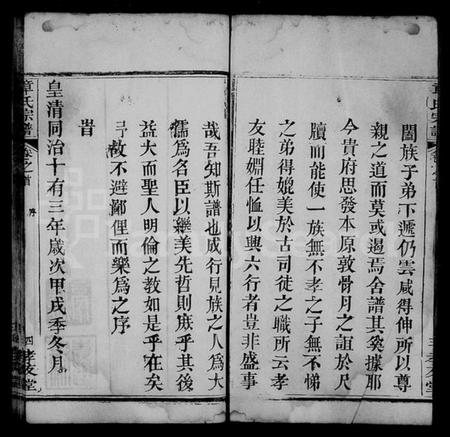 闔族子弟下遞仍雲咸得伸所以尊
親之道而莫或遏焉舍譜其奚據耶
今貴府思發本原敦骨月之誼於尺
牘而能使一族無不孝之子無不悌
之弟得媲美於古司徒之職所云孝
友睦婣任恤以興六行者豈非盛事
哉吾知斯譜也成行見族之人爲大
儒爲名臣以繼美先哲則庶乎其後
益大而聖人明倫之教如是乎在矣
故不避鄙俚而樂爲之序
皆
皇清同治十有三年歲次甲戌季冬月
章氏宗譜
卷之首
序
四
孝友堂